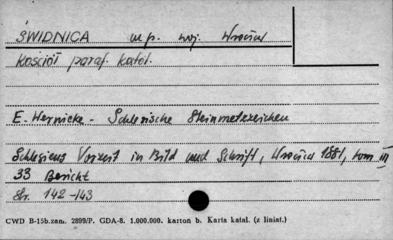 ŚWIDNICA m.p. woj. Wrocław
Kościół paraf. katol.
E. Wernicke - Schlesische Steinmetzzeichen
Schlesiens Vorzeit in Bild und Schrift, Wrocław 1881, tom III
33 Bericht
Str. 142-143
CWD B-15b.zam. 2899/P. GDA-8. 1.000.000. karton b. Karta katal. (z liniat.)